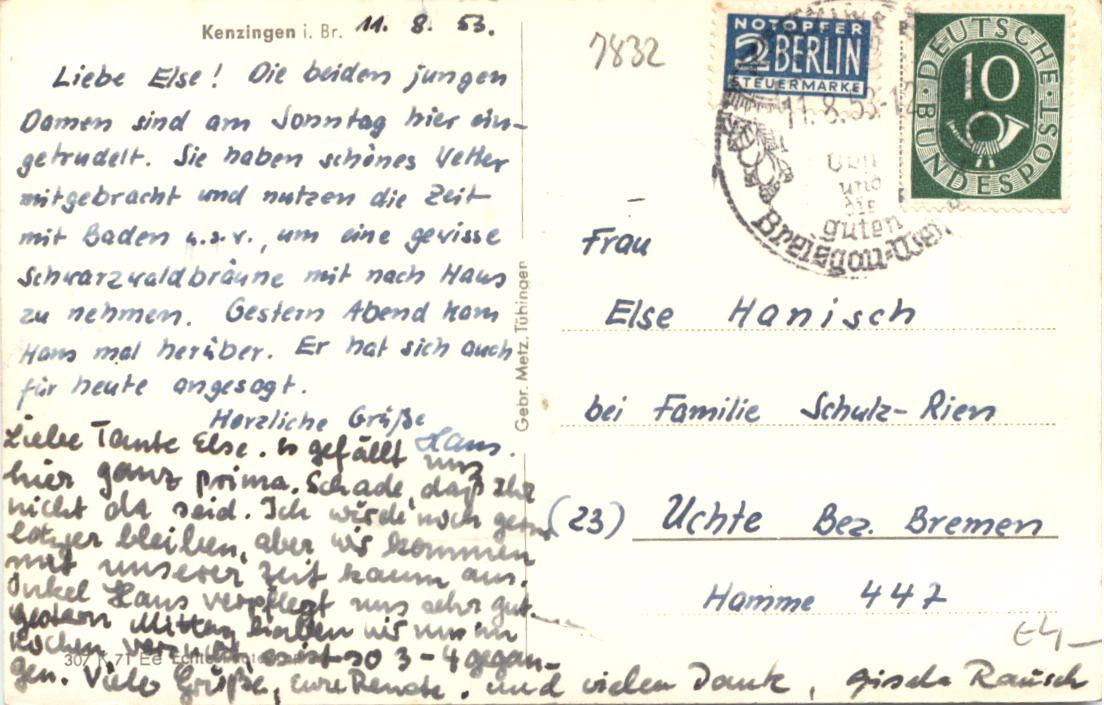 Kenzingen i. Br. 11. 8. 53.
Liebe Else! Die beiden jungen
Damen sind am Sonntag hier ein-
getrudelt. Sie haben schönes Wetter
mitgebracht und nutzen die Zeit
mit Baden u.s.w., um eine gewisse
Schwarzwaldbräune mit nach Haus
zu nehmen. Gestern Abend kam
Hans mal herüber. Er hat sich auch
für heute angesagt.
Herzliche Grüße
Hans.
Liebe Tante Else. es gefällt uns
hier ganz prima. Schade, daß Ihr
nicht da seid. Ich würde noch gerne
bleiben, aber wir kommen
mit unserer Zeit kaum aus.
Onkel Hans verpflegt uns sehr gut.
gestern Mittag haben wir uns im
Kochen versucht, es ist so 3-4 gegan-
gen. Viele Grüße, eure Renate. und vielen Dank, Gisela Rausch
307 K 71 Ee
Gebr. Metz, Tübingen
7832
NOTOPFER
2 BERLIN
STEUERMARKE
DEUTSCHE
BUNDESPOST
10
11.8.53-12
und
die
guten
Breisgau-
Frau
Else Hanisch
bei Familie Schulz-Rien
(23) Uchte Bez. Bremen
Hamme 447
E4-